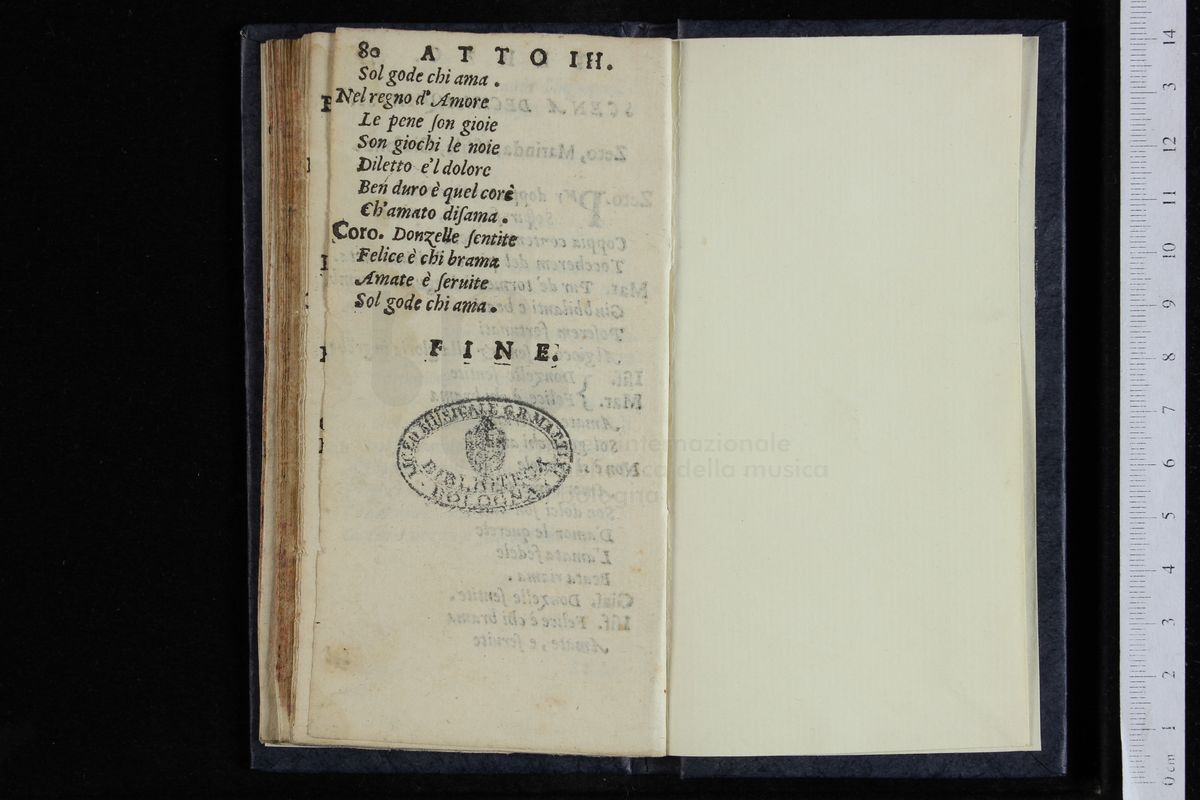 80 ATTO III.
Sol gode chi ama.
Nel regno d'Amore
Le pene son gioie
Son giochi le noie
Diletto e'l dolore
Ben duro è quel corè
Ch'amato disama.
Coro. Donzelle sentite
Felice è chi brama
Amate è seruite
Sol gode chi ama.
FINE.
LICEO MUSICALE G.B. MARTINI
BIBLIOTECA
BOLOGNA
internazionale
della musica
bologna
14
13
12
11
10
9
8
7
6
5
4
3
2
1
0 cm